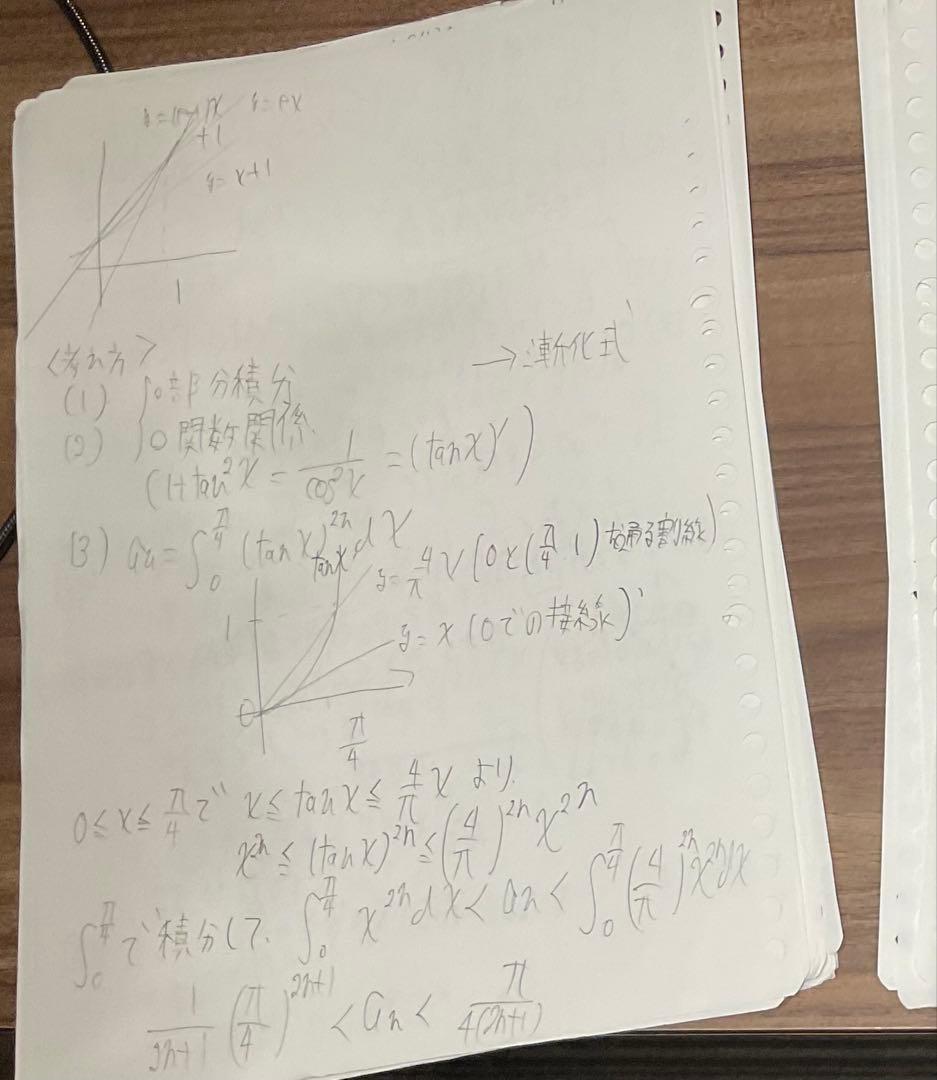 +1
y=x+1
1
<考え方>
→漸化式
(1) ○部分積分
(2) ○関数関係
(1+tan²x = 1/cos²x = (tanx)')
(3) an = ∫₀^(π/4) (tanx)^(2n) dx
tanx
y=4/π x (Oと(π/4, 1)を通る割線)
1
y=x (Oでの接線)
O
π/4
0≦x≦π/4で x≦tanx≦4/π x より、
x^(2n)≦(tanx)^(2n)≦(4/π)^(2n) x^(2n)
∫₀^(π/4)で積分して、∫₀^(π/4) x^(2n) dx < an < ∫₀^(π/4) (4/π)^(2n) x^(2n) dx
1/(2n+1) (π/4)^(2n+1) < an < π/(4(2n+1))